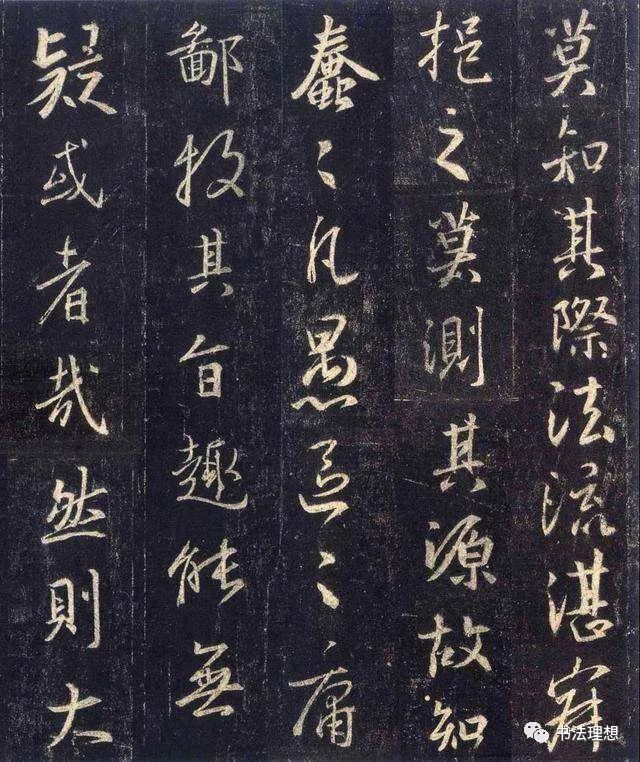 莫知其際法流湛寂
挹之莫測其源故知
蠢〻凡愚區〻庸
鄙投其旨趣能無
疑或者哉然則大
书法理想